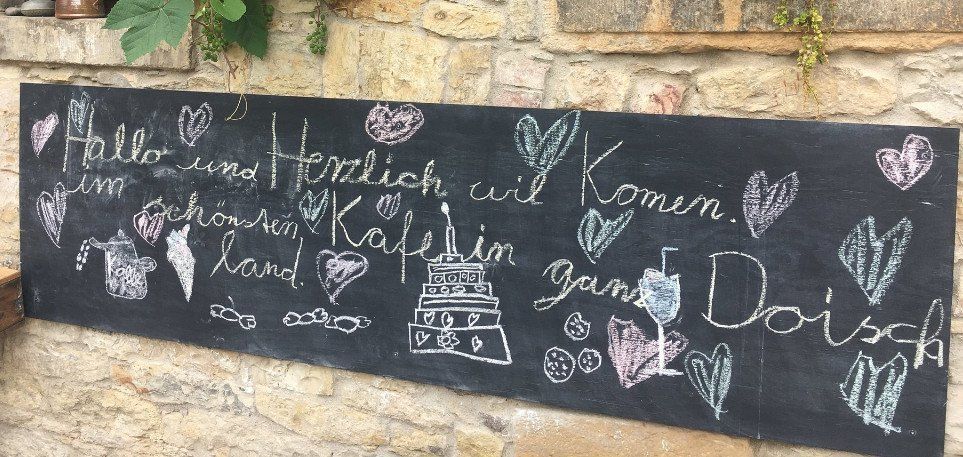 Hallo und Herzlich wil Komen.
im schönsten Kafe in ganz Doisch
land.